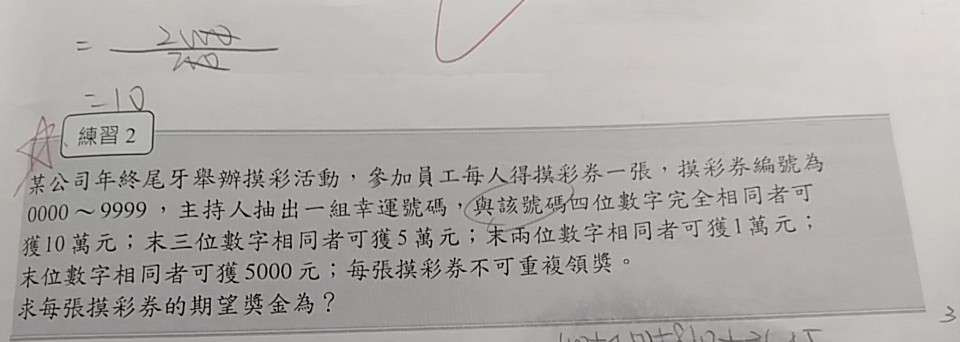 =
=10
練習 2
某公司年終尾牙舉辦摸彩活動，參加員工每人得摸彩券一張，摸彩券編號為
0000～9999，主持人抽出一組幸運號碼，與該號碼四位數字完全相同者可
獲10萬元；末三位數字相同者可獲5萬元；末兩位數字相同者可獲1萬元；
末位數字相同者可獲5000元；每張摸彩券不可重複領獎。
求每張摸彩券的期望獎金為？
3